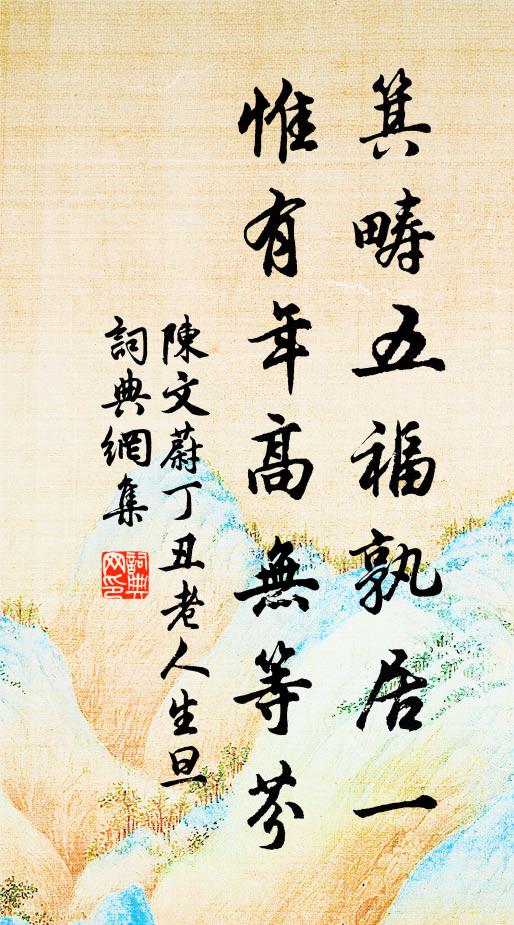 箕疇五福孰居一
惟有年高無等芬
陳文蔚丁丑老人生旦
詞典網集
詞典
网印